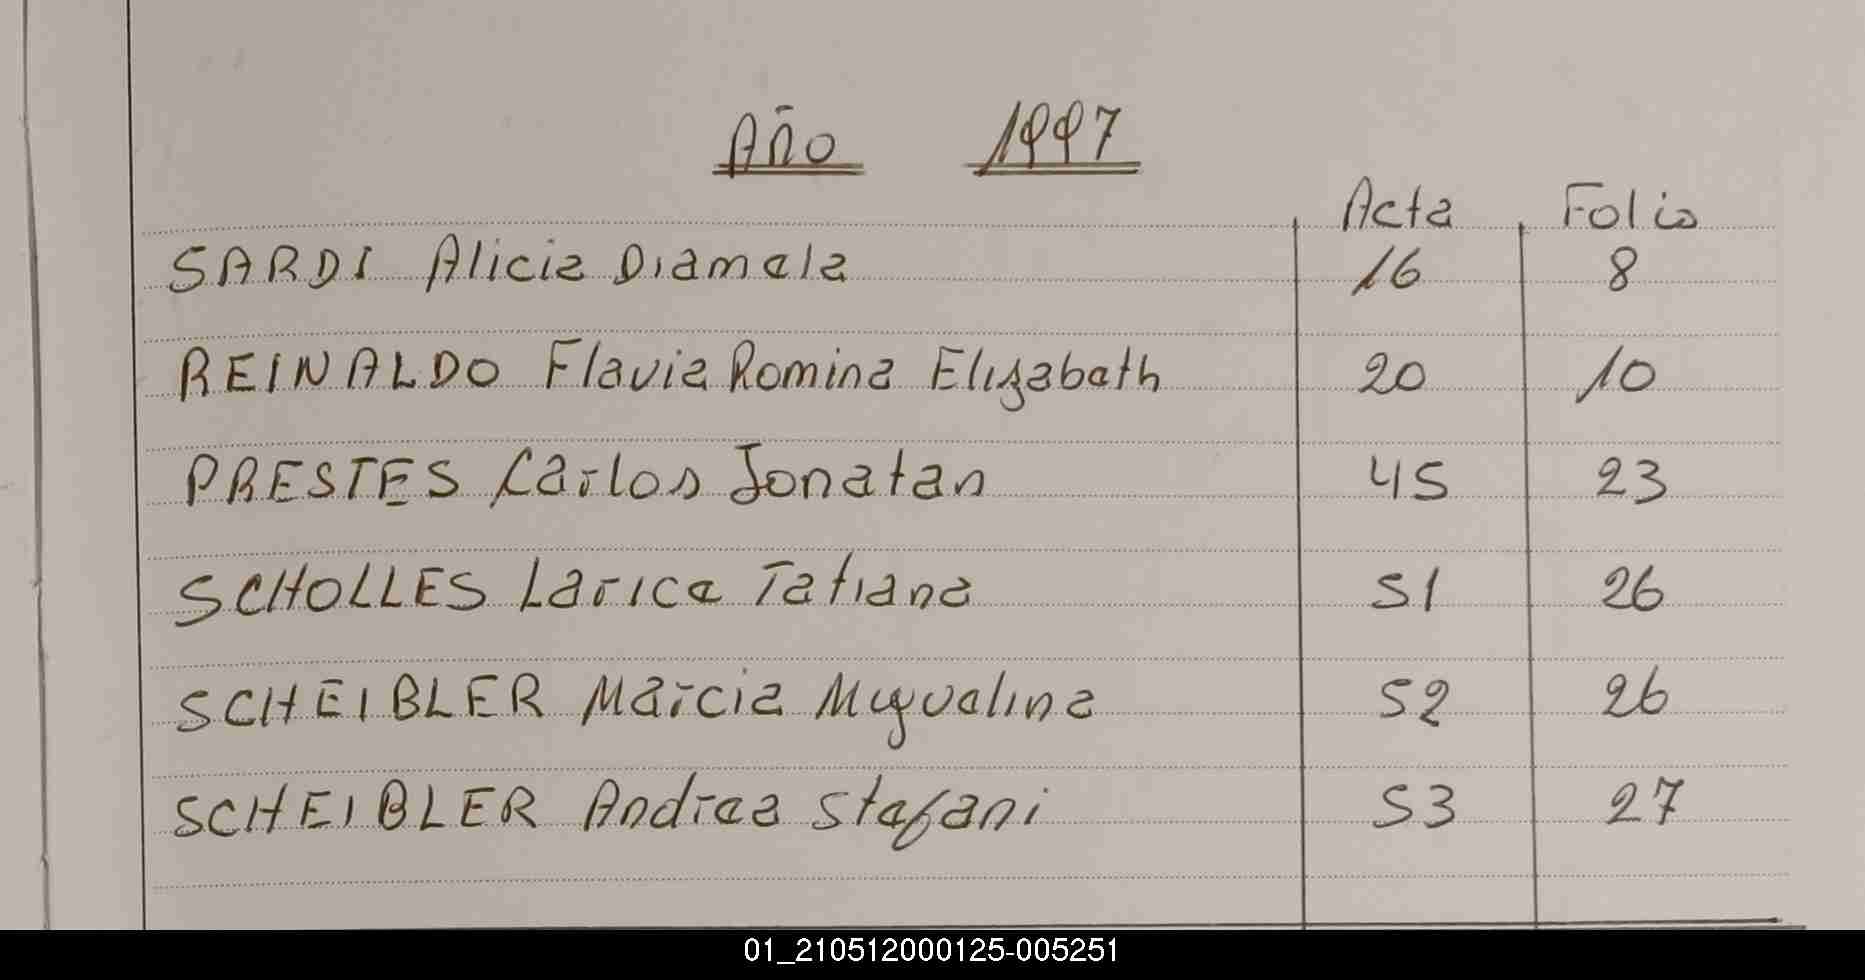 Año 1997
Acta Folio
SARDI Alicia Diamela 16 8
REINALDO Flavia Romina Elizabeth 20 10
PRESTES Carlos Jonatan 45 23
SCHOLLES Larica Tatiana 51 26
SCHEIBLER Marcia Miquelina 52 26
SCHEIBLER Andrea Stefani 53 27
01_210512000125-005251